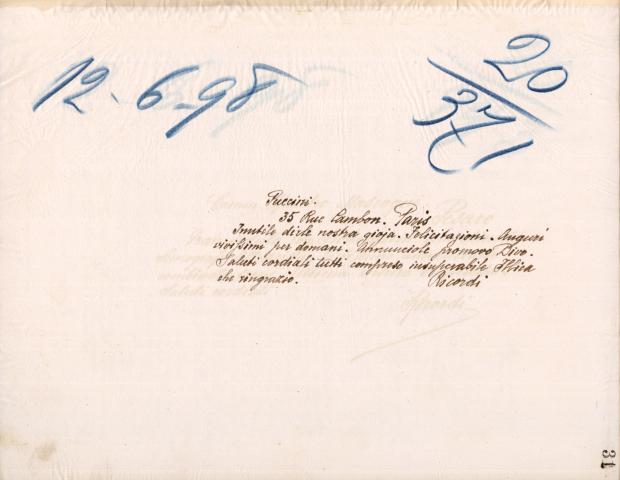 12-6-98
20/37
Puccini.
35 Rue Cambon. Paris
Inutile dirle nostra gioja. Felicitazioni. Auguri
vivissimi per domani. Annunciole promovo Divo.
Saluti cordiali tutti compreso insuperabile Illica
che ringrazio. Ricordi
31